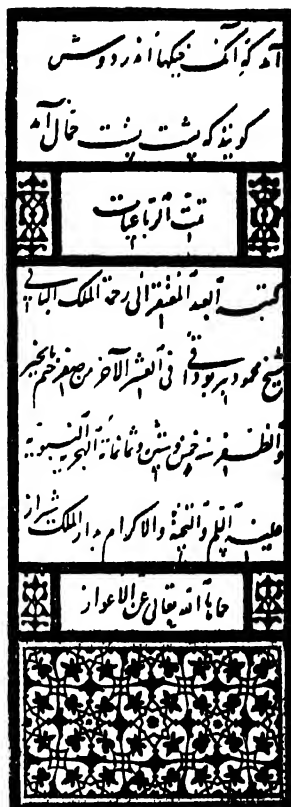 آمد که آنک خیکها اندر دوش
گویند که پشت پشت حمال آمد
تمت الرباعیات
کتبه العبد المفتقر الی رحمة الملک الباقی
شیخ محمود یربوداقی فی العشر الآخر من صفر ختم بالخیر
والظفر سنه خمس وستین وثمانمائة الهجریه النبویه
علیه السلم والتحیة والاکرام بدار الملک شیراز
حماها الله تعالی عن الاعواز